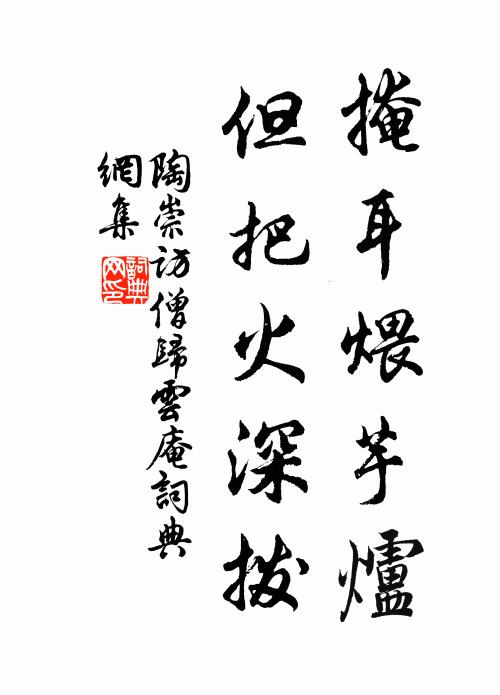 掩耳煨芋爐
但把火深撥
陶崇訪僧歸雲庵詞典
網集
詞典網印